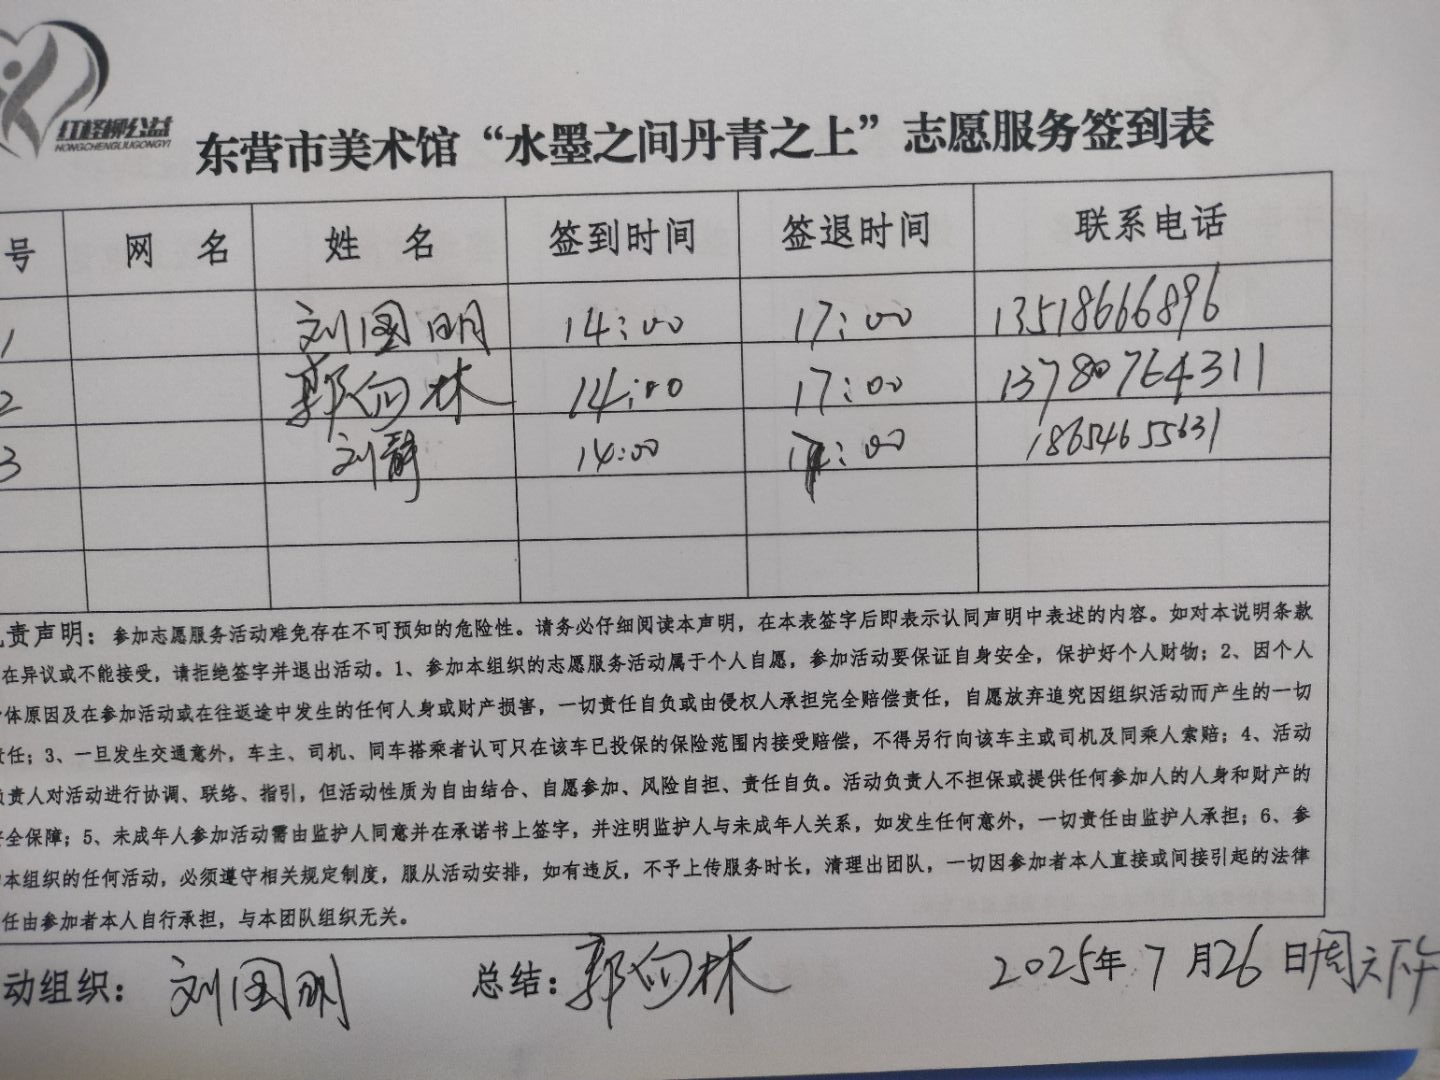 红柽柳公益
HONGCHENGLIUGONGYI
东营市美术馆“水墨之间丹青之上”志愿服务签到表
号 网 名 姓 名 签到时间 签退时间 联系电话
1 刘国明 14:00 17:00 13518666896
2 郭向林 14:00 17:00 13780764311
3 刘静 14:00 17:00 18654655631
责声明：参加志愿服务活动难免存在不可预知的危险性。请务必仔细阅读本声明，在本表签字后即表示认同声明中表述的内容。如对本说明条款
在异议或不能接受，请拒绝签字并退出活动。1、参加本组织的志愿服务活动属于个人自愿，参加活动要保证自身安全，保护好个人财物；2、因个人
体原因及在参加活动或在往返途中发生的任何人身或财产损害，一切责任自负或由侵权人承担完全赔偿责任，自愿放弃追究因组织活动而产生的一切
责任；3、一旦发生交通意外，车主、司机、同车搭乘者认可只在该车已投保的保险范围内接受赔偿，不得另行向该车主或司机及同乘人索赔；4、活动
负责人对活动进行协调、联络、指引，但活动性质为自由结合、自愿参加、风险自担、责任自负。活动负责人不担保或提供任何参加人的人身和财产的
安全保障；5、未成年人参加活动需由监护人同意并在承诺书上签字，并注明监护人与未成年人关系，如发生任何意外，一切责任由监护人承担；6、参
本组织的任何活动，必须遵守相关规定制度，服从活动安排，如有违反，不予上传服务时长，清理出团队，一切因参加者本人直接或间接引起的法律
任由参加者本人自行承担，与本团队组织无关。
动组织：刘国明 总结：郭向林 2025年7月26日周六下午